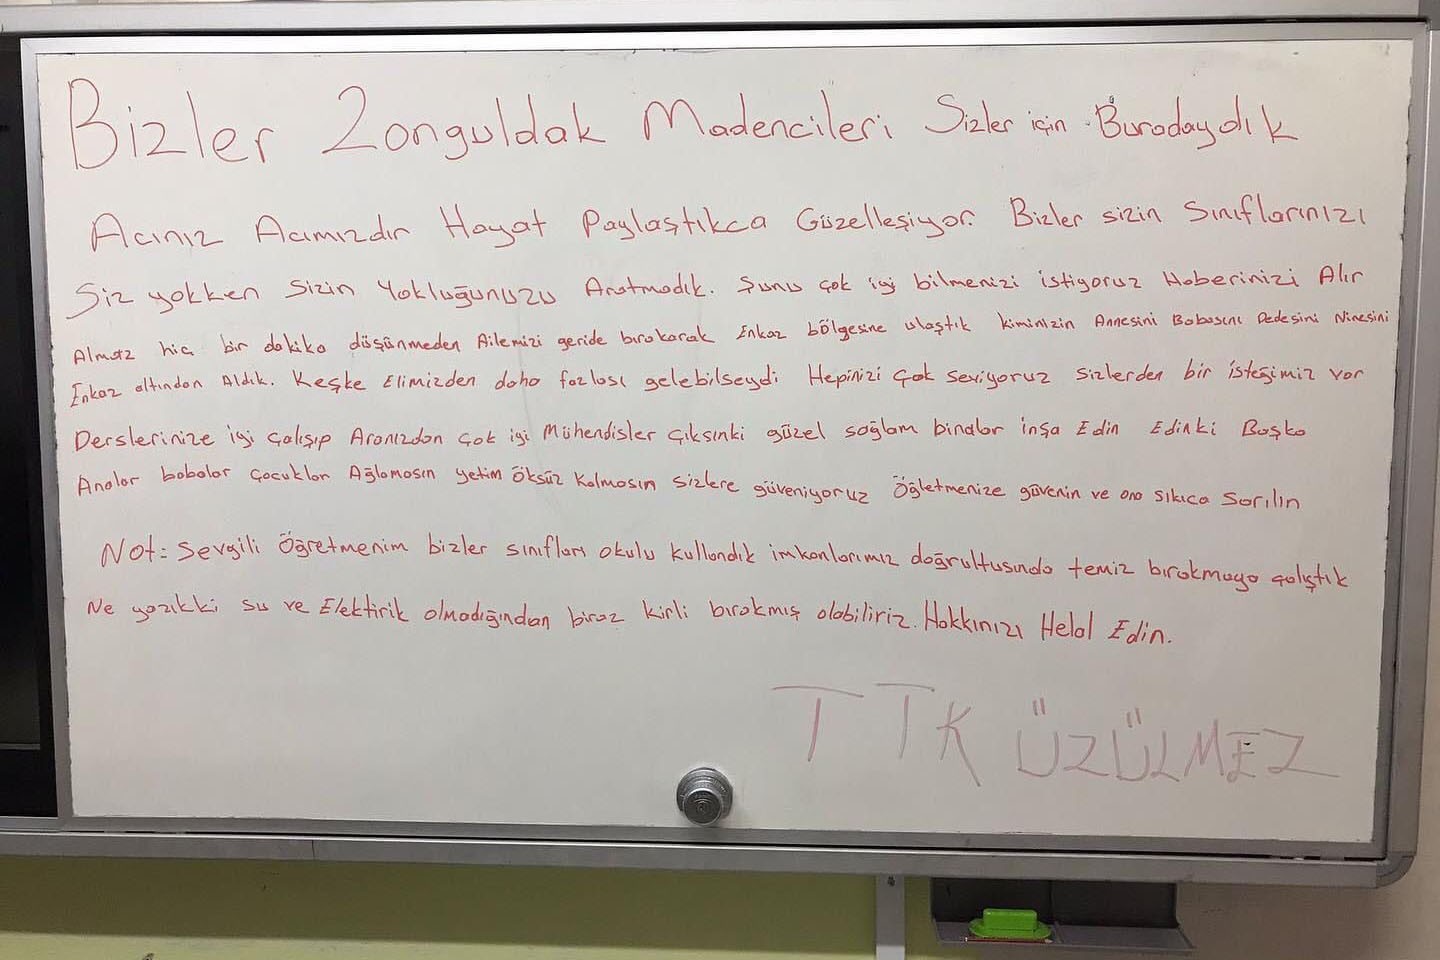 Bizler Zonguldak Madencileri Sizler için Buradaydık
Acınız Acımızdır Hayat Paylaştıkca Güzelleşiyor. Bizler sizin Sınıflarınızı
Siz yokken Sizin Yokluğunuzu Aratmadık. Şunu çok iyi bilmenizi istiyoruz Haberinizi Alır
Almaz hiç bir dakika düşünmeden Ailemizi geride bırakarak Enkaz bölgesine ulaştık kiminizin Annesini Babasını Dedesini Ninesini
Enkaz altından Aldık. Keşke Elimizden daha fazlası gelebilseydi Hepinizi Çok Seviyoruz Sizlerden bir isteğimiz var
Derslerinize iyi çalışıp Aranızdan çok iyi Mühendisler çıksınki güzel sağlam binalar inşa Edin Edinki Başka
Analar babalar çocuklar Ağlamasın yetim öksüz kalmasın sizlere güveniyoruz Öğletmenize güvenin ve ona sıkıca sarılın
Not: Sevgili Öğretmenim bizler sınıfları okulu kullandık imkanlarımız doğrultusunda temiz bırakmaya çalıştık
Ne yazıkki su ve Elektirik olmadığından biraz kirli bırakmış olabiliriz. Hakkınızı Helal Edin.
TTK ÜZÜLMEZ